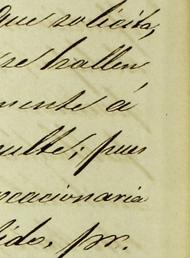 que solicita,
se hallen
mente á
sulte; pues
ocacionaria
dido, pr.